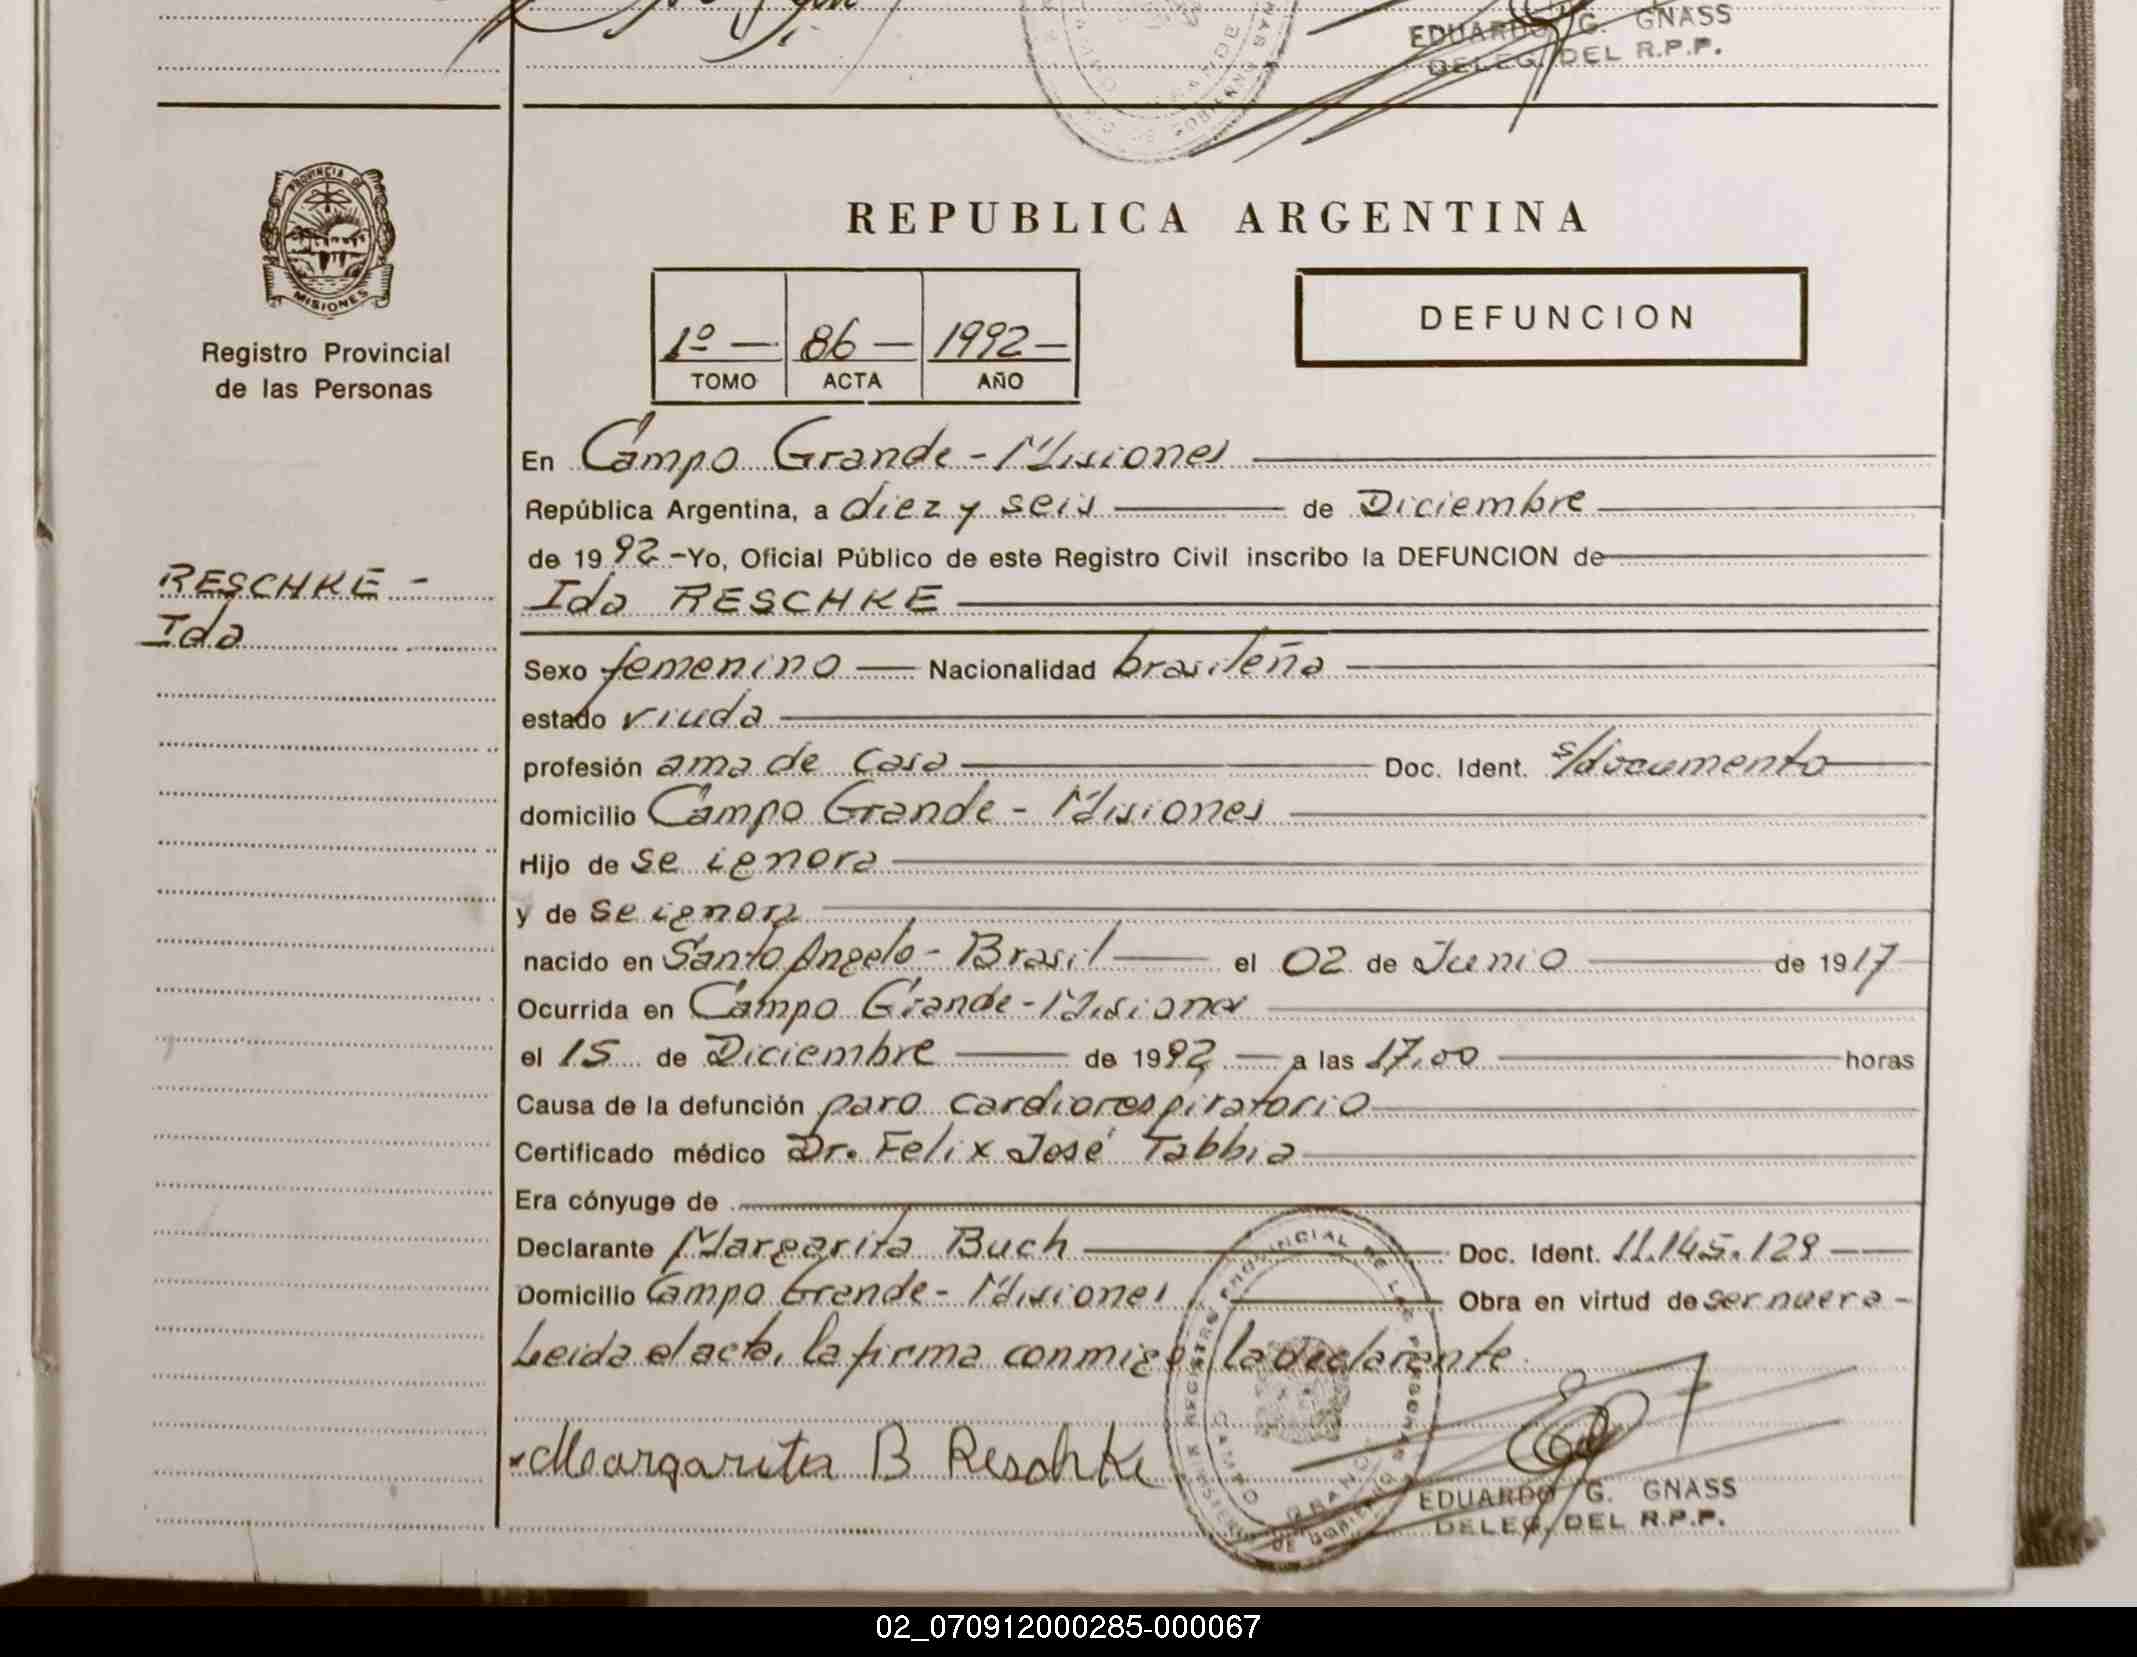 EDUARDO G. GNASS
DELEG. DEL R.P.P.
PROVINCIA DE
MISIONES
Registro Provincial
de las Personas
RESCHKE -
Ida
REPUBLICA ARGENTINA
1º — 86 — 1992 —
TOMO ACTA AÑO
DEFUNCION
En Campo Grande - Misiones
República Argentina, a diez y seis de Diciembre
de 1992 - Yo, Oficial Público de este Registro Civil inscribo la DEFUNCION de
Ida RESCHKE
Sexo femenino — Nacionalidad brasileña
estado viuda
profesión ama de casa Doc. Ident. s/documento
domicilio Campo Grande - Misiones
Hijo de se ignora
y de se ignora
nacido en Santo Angelo - Brasil el 02 de Junio de 1917
Ocurrida en Campo Grande - Misiones
el 15 de Diciembre de 1992 — a las 17,00 horas
Causa de la defunción paro cardiorespiratorio
Certificado médico Dr. Felix José Tabbia
Era cónyuge de
Declarante Margarita Buch Doc. Ident. 11.145.129
Domicilio Campo Grande - Misiones Obra en virtud de ser nuera -
Leida el acta, la firma conmigo la declarante.
Margarita B Reschke
REGISTRO PROVINCIAL DE LAS PERSONAS
CAMPO GRANDE
EDUARDO G. GNASS
DELEG. DEL R.P.P.
02_070912000285-000067